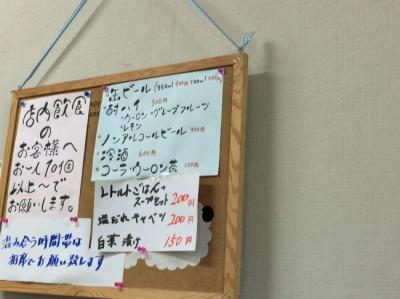 店内飲食
の
お客様へ
お一人10個
以上〜で
お願いします。
混み合う時間帯は
相席でお願い致します
缶ビール(350ml)400円
酎ハイ 300円
・ウーロン・グレープフルーツ
・レモン
ノンアルコールビール 300円
冷酒 600円
コーラ・ウーロン茶 100円
レトルトごはん+
スープセット 200円
塩だれキャベツ 200円
白菜漬け 150円